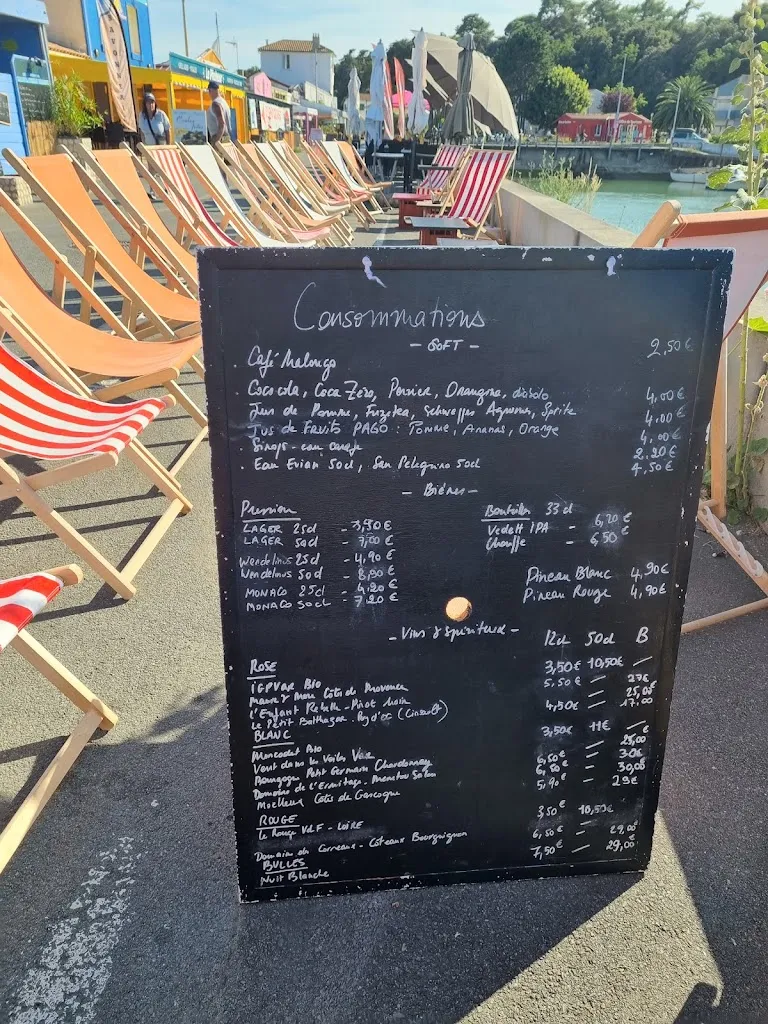 Consommations
- SOFT -
Café Malongo 2,50€
Cocacola, Coca Zéro, Perrier, Orangina, diabolo 4,00€
Jus de Pomme, Fuzetea, Schweppes Agrumes, Sprite 4,00€
Jus de FRUITS PAGO : Pomme, Ananas, Orange 4,00€
Sirop - eau 2,20€
Eau Evian 50cl, San Pelegrino 50cl 4,50€
- Bières -
Pression
LAGER 25cl - 3,90€
LAGER 50cl - 7,00€
Wendelinus 25cl - 4,90€
Wendelinus 50cl - 8,90€
MONACO 25cl - 4,20€
MONACO 50cl - 7,20€
Bouteilles 33cl
Vedett IPA - 6,20€
Chouffe - 6,50€
Pineau Blanc 4,90€
Pineau Rouge 4,90€
- Vins & Spiritueux -
12cl 50cl B
ROSE
IGP VAR Bio 3,50€ 10,50€ —
Maure & Mer Côtes de Provence 5,50€ — 27€
L'Enfant Rebelle - Pinot Noir — 25,00€
Le Petit Balthazar - Pay d'oc (Cinsault) 4,50€ — 17,00
BLANC
Moncodet Bio 3,50€ 11€ —
Vent dans les Voiles Var — 25,00
Bourgogne Petit Germain Chardonnay 6,50€ — 30€
Domaine de l'Ermitage, Menetou Salon 6,50€ — 30,00
Moelleux Côtes de Gascogne 5,90€ — 29€
ROUGE
Le Rouge VDF - LOIRE 3,50€ 10,50€
Domaine des Carreaux - Côteaux Bourguignon 6,50€ — 29,00€
BULLES
Nuit Blanche 7,50€ — 29,00€